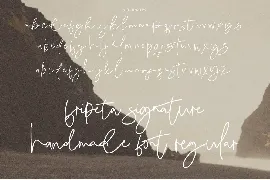 abcdefghijklmnopqrstuvwxyz
abcdefghijklmnopqrstuvwxyz
abcdefghijklmnopqrstuvwxyz
fripeta signature
handmade font regular